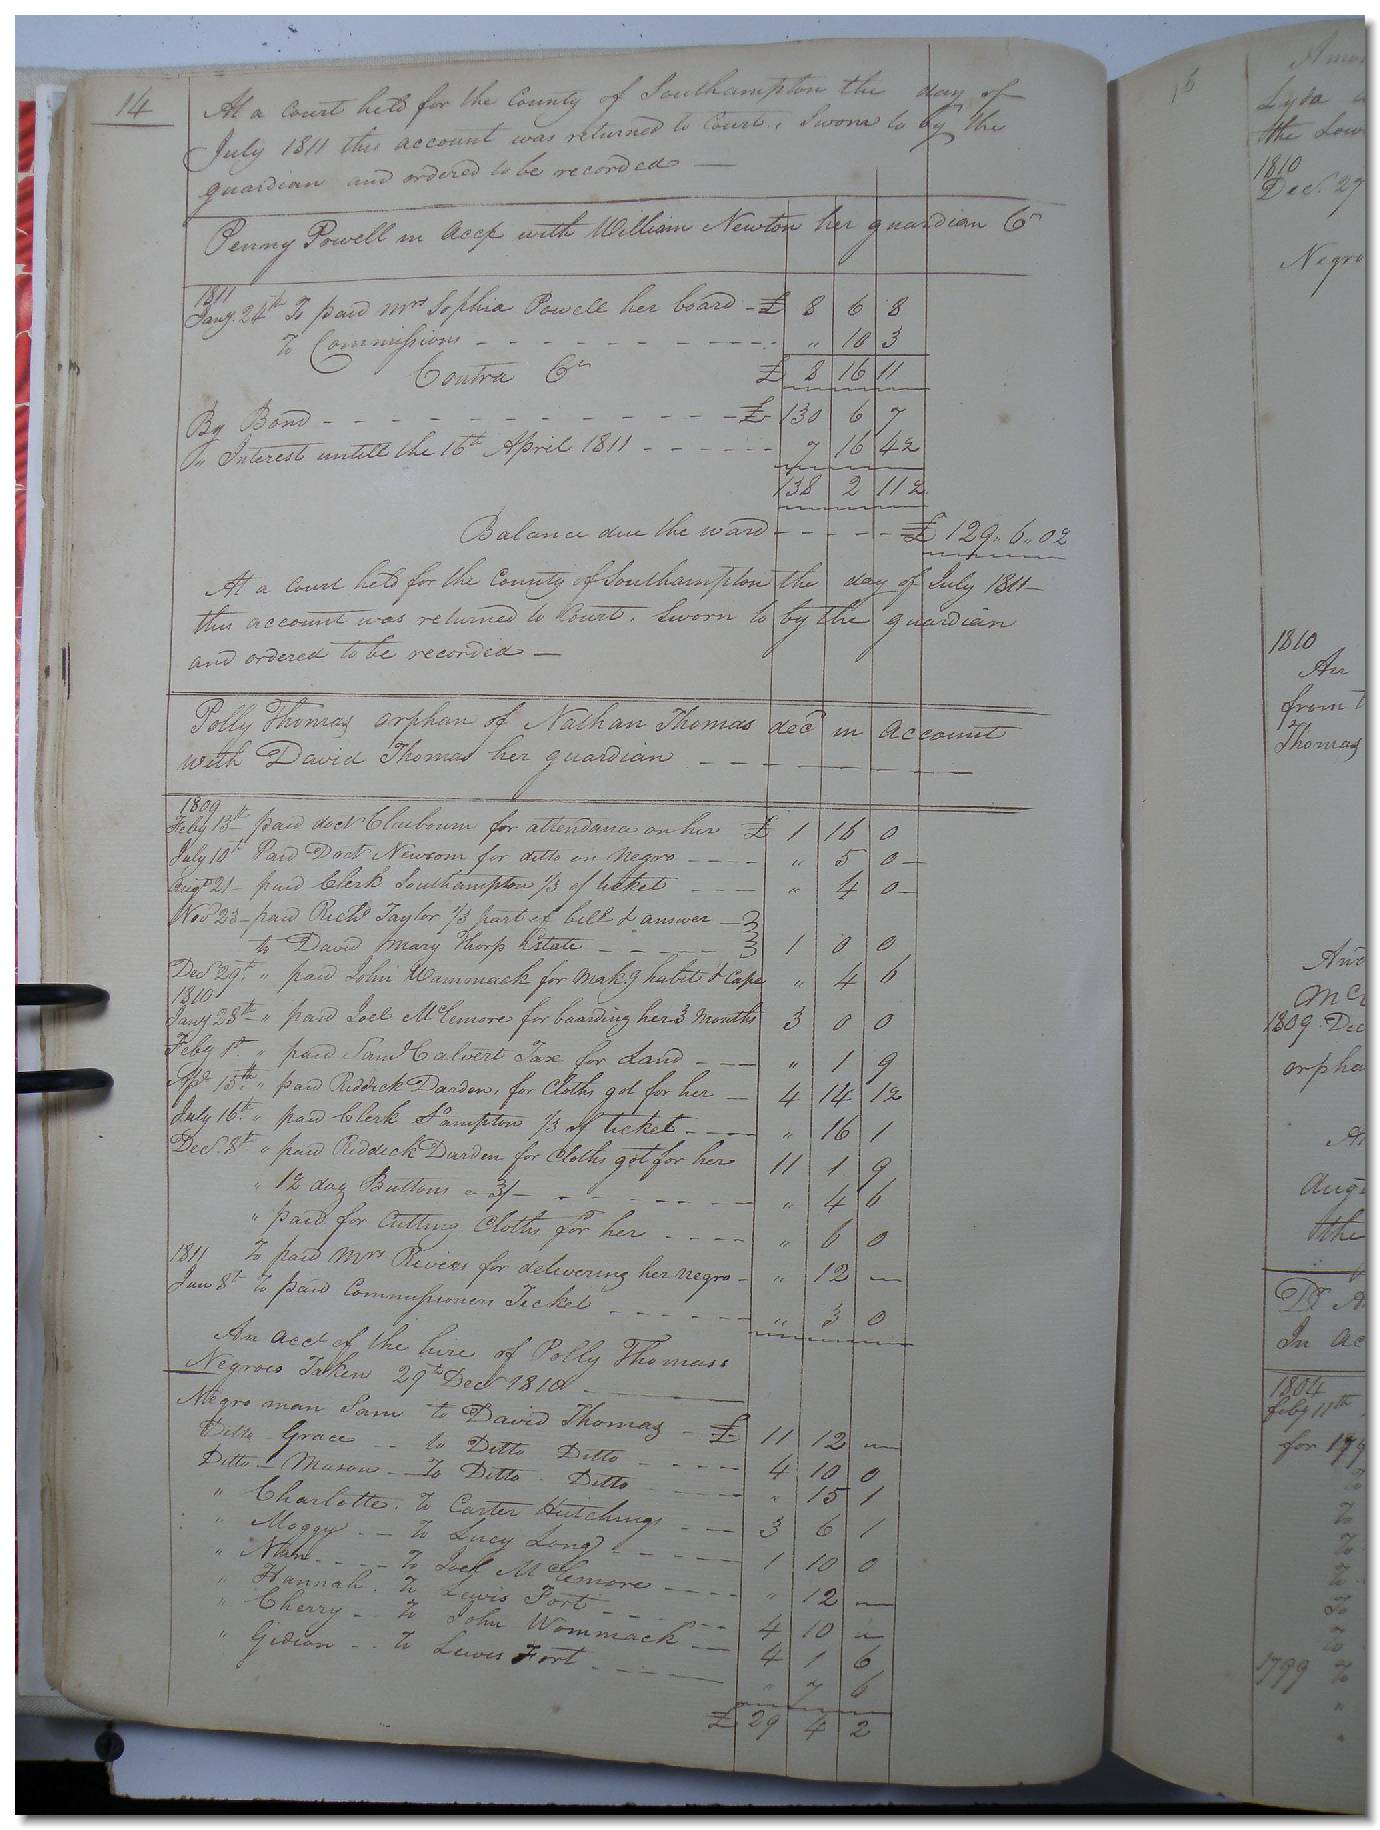 14
At a Court held for the County of Southampton the day of
July 1811 this account was returned to Court, Sworn to by the
guardian and ordered to be recorded —
Penny Powell in Acct with William Newton her guardian Cr
1811
Jany. 24th To paid Mrs Sophia Powell her board - £ 8 6 8
To Commissions - - - - " 10 3
Contra Cr £ 8 16 11
By Bond - - - - £ 130 6 7
" Interest untill the 16th April 1811 - - - - 7 16 4½
138 2 11½
Balance due the ward - - - - £ 129 " 6 " 0½
At a Court held for the County of Southampton the day of July 1811 —
this account was returned to Court, Sworn to by the guardian
and ordered to be recorded —
Polly Thomas orphan of Nathan Thomas decd in account
with David Thomas her guardian - - - -
1809
Feby 13th paid doct Claibourn for attendance on her £ 1 16 0
July 10th Paid Doct Newsom for ditto on Negro - - - - " 5 0 —
Augt 21 - paid Clerk Southampton 1/3 of ticket - - - " 4 0 —
Novr 23 - paid Richd Taylor 1/3 part of bill & answer - }
to David Mary Thorp Estate - - - } 1 0 0
Decr 29th " paid John Wammack for Makg habit & Cape " 4 6
1810
Jany 28th " paid Joel McLemore for boarding her 3 Months 3 0 0
Feby 1st " paid Saml Calvert Tax for Land - - - " 1 9
Apl 15th " paid Riddick Darden, for Cloths got for her - 4 14 1½
July 16th " paid Clerk Sampton 1/3 of ticket - - - " 16 1
Decr 8th " paid Riddick Darden for Cloths got for her 11 1 9
" 1½ doz Buttons @ 3/- - - - - " 4 6
" paid for Cutting Cloths for her - - - - " 6 0
1811 To paid Mrs Rivers for delivering her negro - " 12 —
Jan 8th To paid Commissioners Ticket - - - - " 3 0
An acct of the hire of Polly Thomass
Negroes Taken 29th Decr 1810
Negro man Sam to David Thomas - £ 11 12 —
Ditto Grace - - to Ditto Ditto - - - - 4 10 0
Ditto - Mason - To Ditto - Ditto - - - - " 15 1
" Charlotte. To Carter Hutchings - - - 3 6 1
" Moggy - - To Lucy Long - - - - 1 10 0
" Nan - - - - To Joel McLemore - - - - " 12 —
" Hannah. To Lewis Fort - - - - 4 10 —
" Cherry - - To John Wommack - - 4 1 6
" Gidion - - To Lewis Fort - - - - " 7 6
£ 29 4 2
15
Lyda
the
1810
Decr. 27
Negro
1810
An
from
Thomas
1809. Dec
orpha
Augt
the
In ac
1804
Feby 11th
for 179
To
To
To
To
To
To
1799 To
"
"